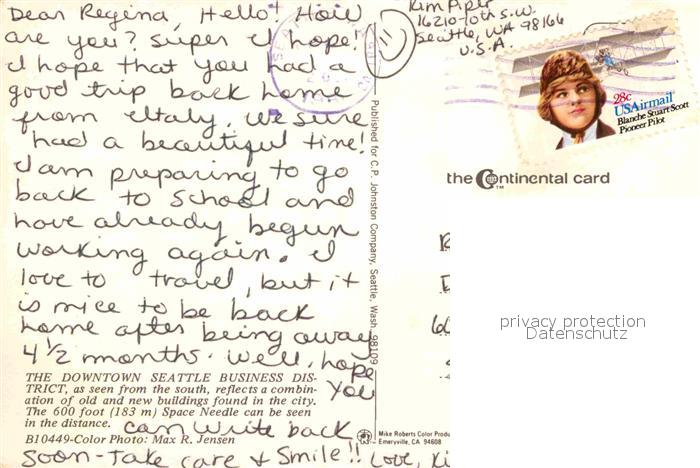 Dear Regina, Hello! How
are you? Super I hope!
I hope that you had a
good trip back home
from Italy. We sure
had a beautiful time!
I am preparing to go
back to school and
have already begun
working again. I
love to travel, but it
is nice to be back
home after being away
4 1/2 months. Well, hope
you
can write back
soon - Take care & Smile!! Love, Ki
THE DOWNTOWN SEATTLE BUSINESS DIS-
TRICT, as seen from the south, reflects a combin-
ation of old and new buildings found in the city.
The 600 foot (183 m) Space Needle can be seen
in the distance.
B10449-Color Photo: Max R. Jensen
Published for C.P. Johnston Company, Seattle, Wash. 98109
Mike Roberts Color Produ
Emeryville, CA 94608
Kim Piper
16210-10th S.W.
Seattle, WA 98166
U.S.A.
28c
USAirmail
Blanche Stuart Scott
Pioneer Pilot
the Continental card
TM
privacy protection
Datenschutz